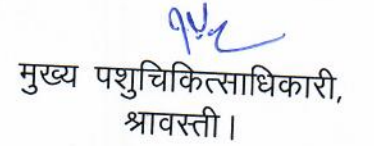 मुख्य पशुचिकित्साधिकारी,
श्रावस्ती।